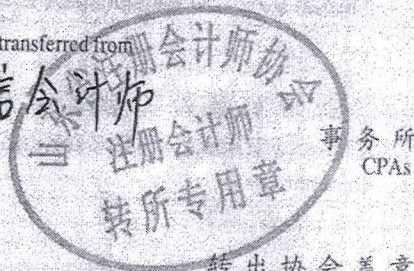 transferred from
信会计师
山东省注册会计师协会
注册会计师
转所专用章
事务所
CPAs
转出协会盖章